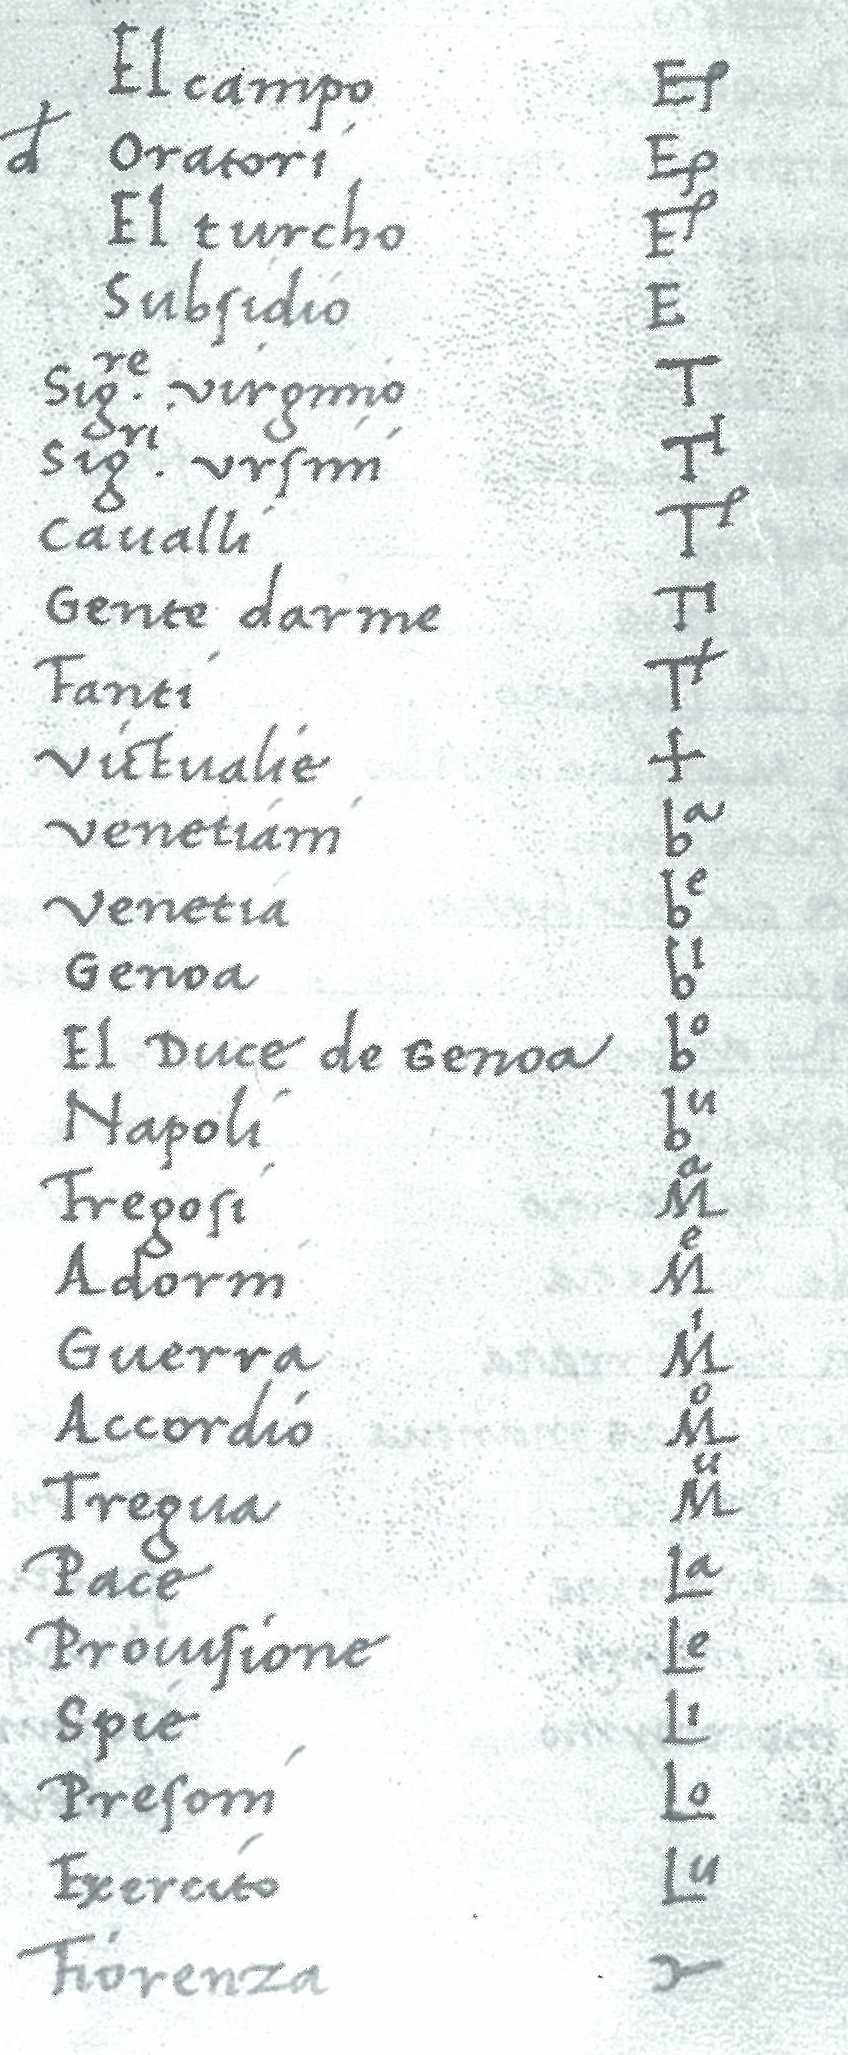 El campo Eρ
d Oratori Eρ
El turcho Eρ
Subsidio E
Sig.re virginio T
Sig.ri vrsini TI
Caualli Tρ
Gente darme T
Fanti T+
Victualie +
Venetiani ba
Venetia be
Genoa bi
El Duce de Genoa bo
Napoli bu
Fregosi Ma
Adorni Me
Guerra Mi
Accordio Mo
Tregua Mu
Pace La
Prouisione Le
Spie Li
Presoni Lo
Exercito Lu
Fiorenza